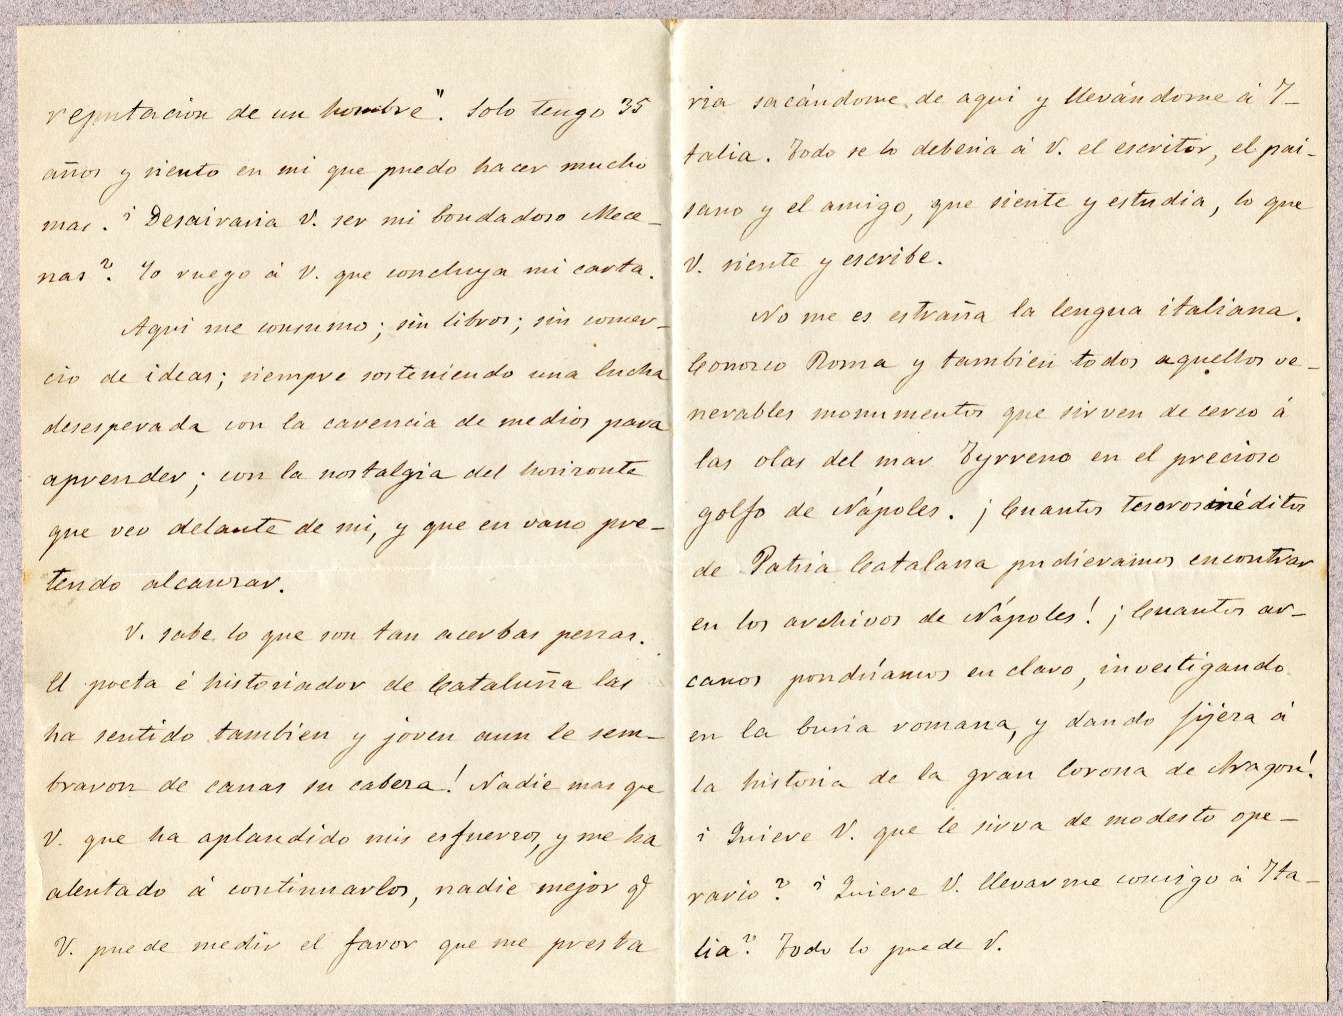 reputacion de un hombre". Solo tengo 35
años y siento en mi que puedo hacer mucho
mas. ¿Desairaria V. ser mi bondadoso Mece-
nas? Yo ruego á V. que concluya mi carta.
Aqui me consumo; sin libros; sin comer-
cio de ideas; siempre sosteniendo una lucha
desesperada con la carencia de medios para
aprender; con la nostalgia del horizonte
que veo delante de mi, y que en vano pre-
tendo alcanzar.
V. sabe lo que son tan acerbas penas.
El poeta é historiador de Cataluña las
ha sentido tambien y joven aun le sem-
braron de canas su cabeza! Nadie mas que
V. que ha aplaudido mis esfuerzos, y me ha
alentado á continuarlos, nadie mejor q̃
V. puede medir el favor que me presta
ria sacándome de aqui y llevándome á I-
talia. Todo se lo deberia á V. el escritor, el pai-
sano y el amigo, que siente y estudia, lo que
V. siente y escribe.
No me es estraña la lengua italiana.
Conozco Roma y tambien todos aquellos ve-
nerables monumentos que sirven de cerco á
las olas del mar Tyrreno en el precioso
golfo de Nápoles. ¡Cuantos tesoros inéditos
de Patria Catalana pudieramos encontrar
en los archivos de Nápoles! ¡Cuantos ar-
canos pondríamos en claro, investigando
en la curia romana, y dando fijeza á
la historia de la gran Corona de Aragon!
¿Quiere V. que le sirva de modesto ope-
rario? ¿Quiere V. llevarme consigo á Ita-
lia? Todo lo puede V.